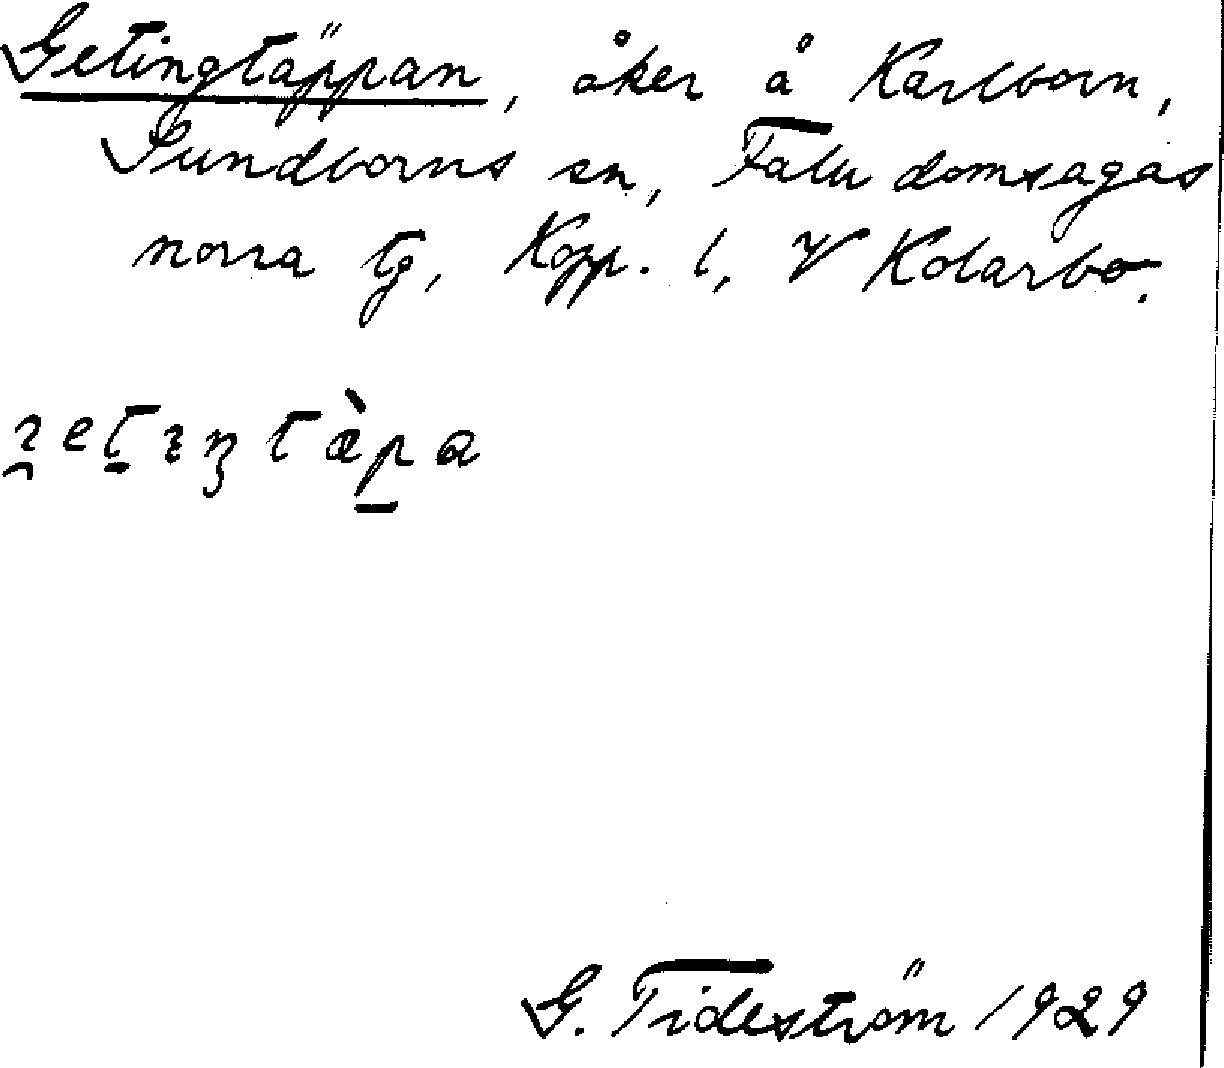 Getingtäppan, åker å Karlborn,
Sundborns sn, Falu domsagas
norra tg, Kopp. l, V Kolarbo.
G. Tideström 1929